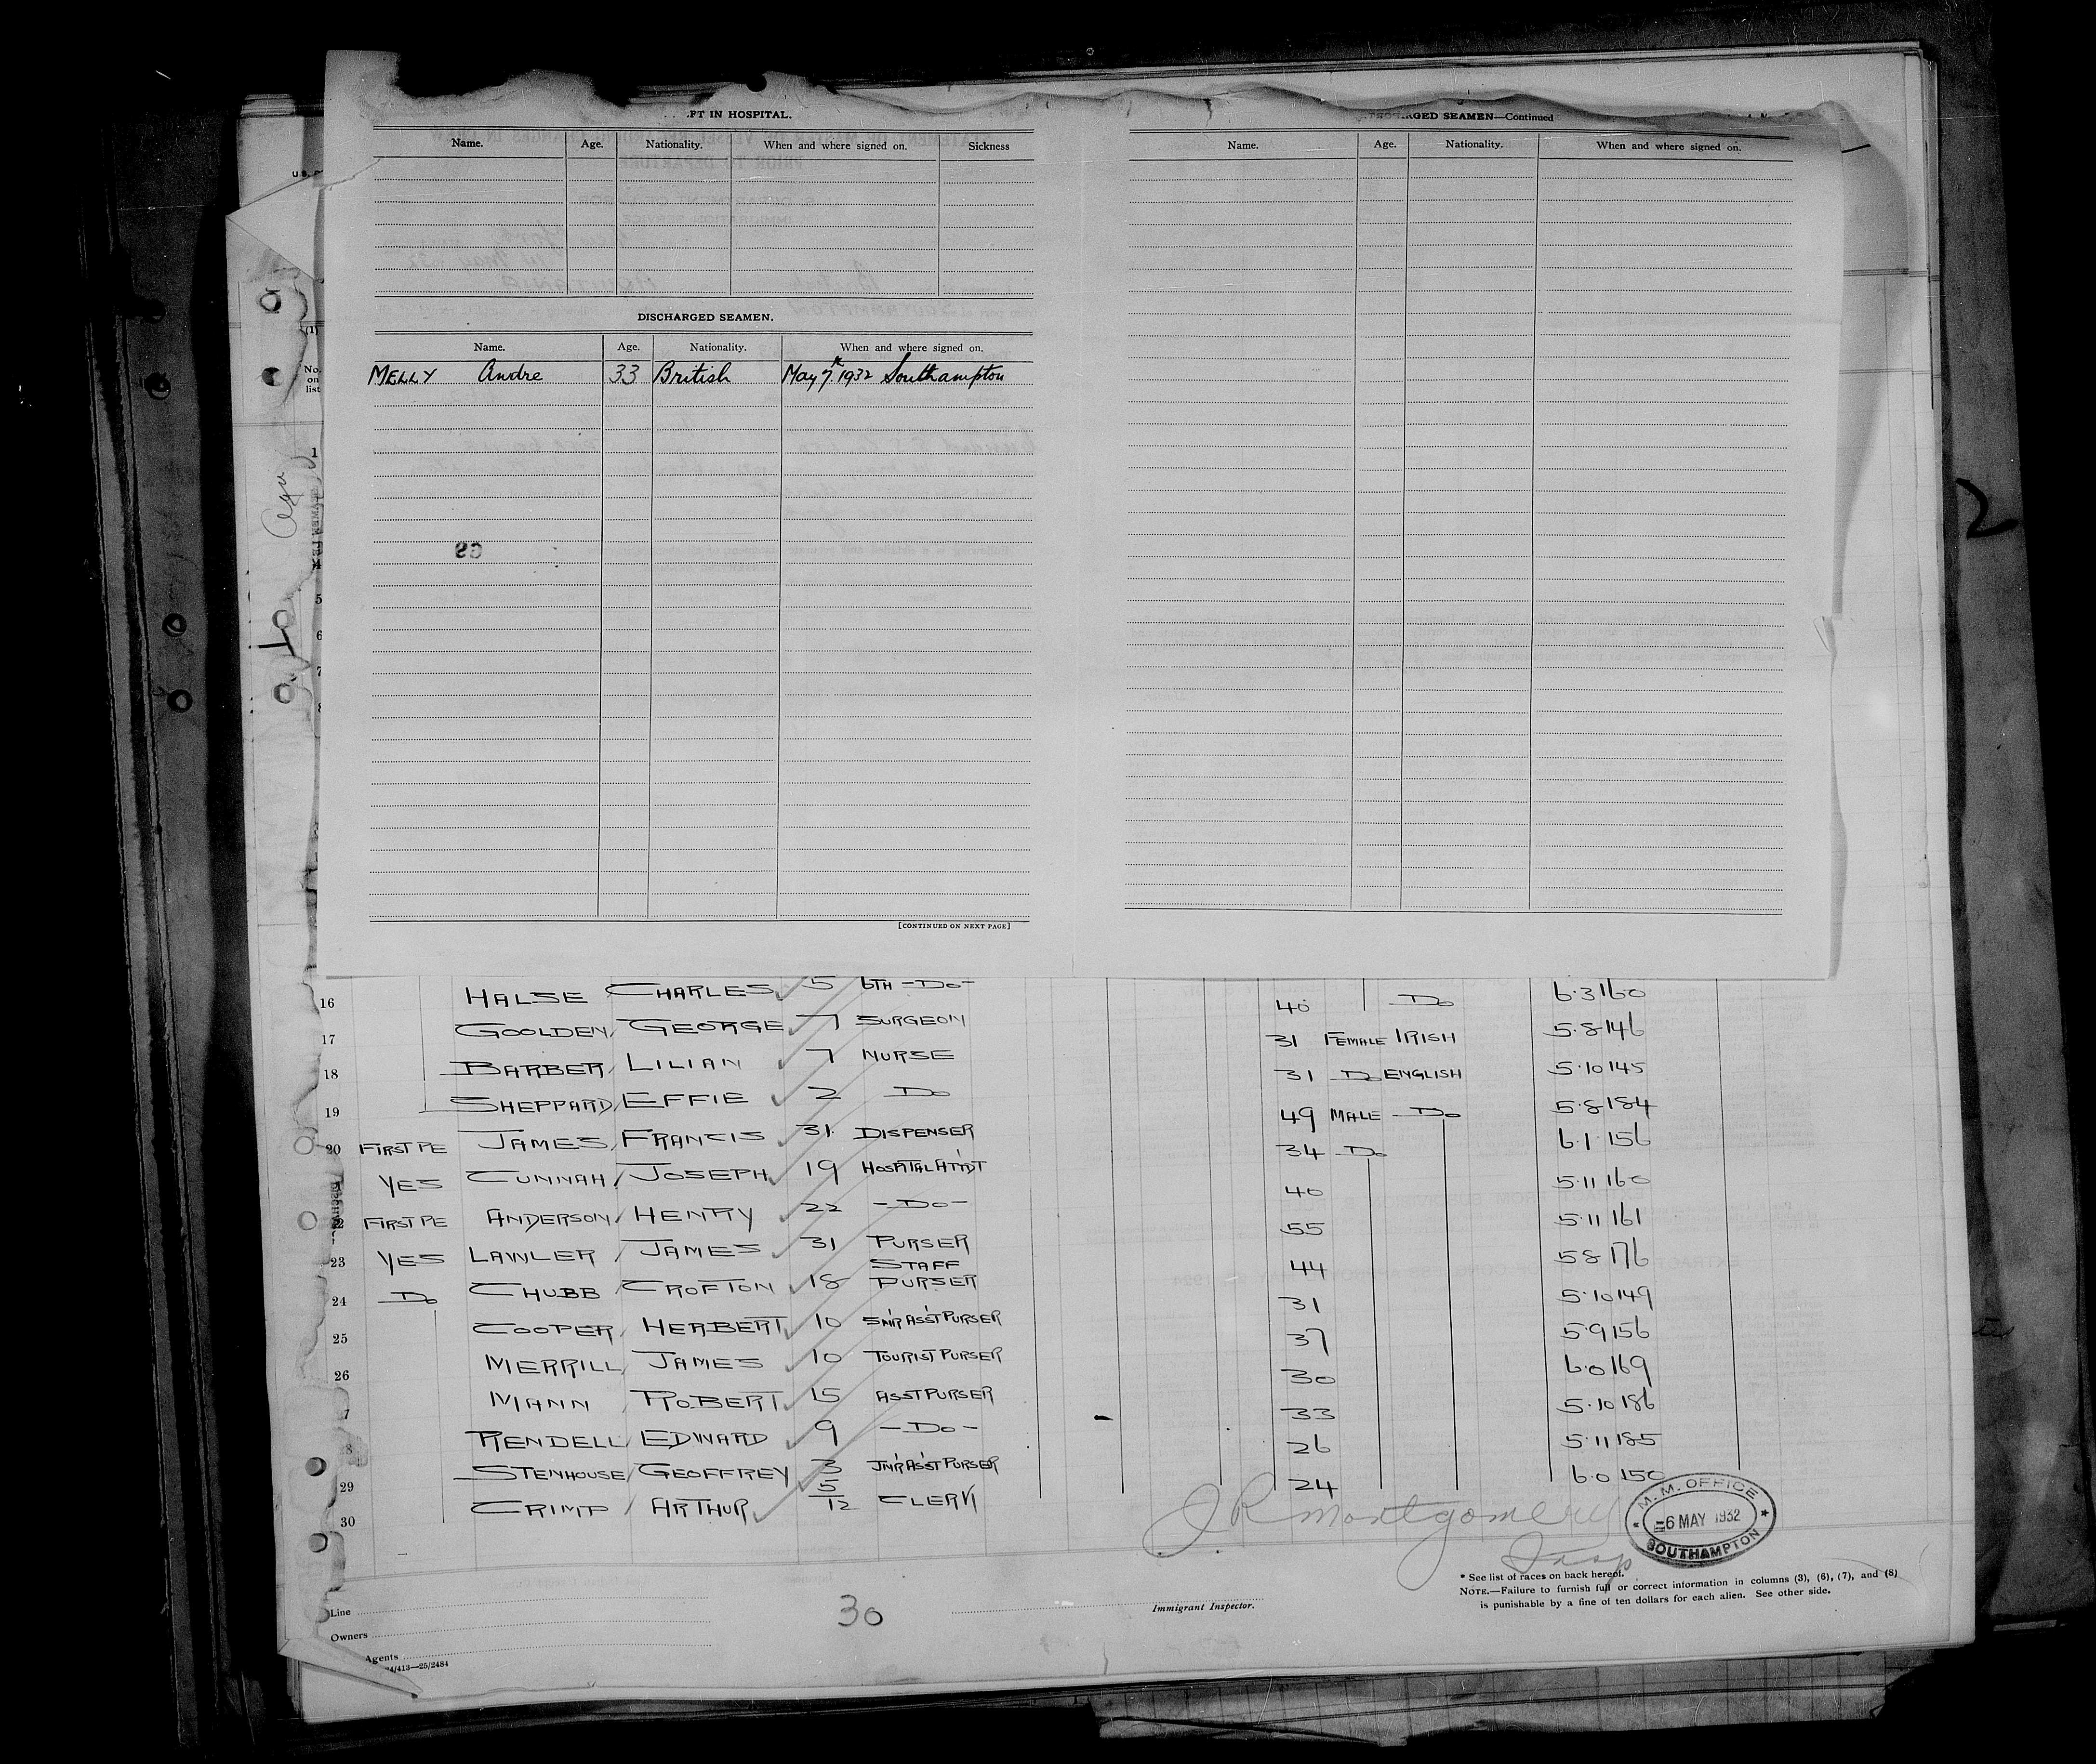 FT IN HOSPITAL.
Name. Age. Nationality. When and where signed on. Sickness
DISCHARGED SEAMEN.
Name. Age. Nationality. When and where signed on.
MELLY Andre 33 British May 7th 1932 Southampton
[CONTINUED ON NEXT PAGE]
RGED SEAMEN—Continued
Name. Age. Nationality. When and where signed on.
2
No. on list
16 HALSE CHARLES 5 6TH -Do- 40 Do 6.3 160
17 GOOLDEN GEORGE 7 SURGEON 31 FEMALE IRISH 5.8 146
18 BARBER LILIAN 7 NURSE 31 Do ENGLISH 5.10 145
19 SHEPPARD EFFIE 2 Do 49 MALE Do 5.8 184
20 FIRST PE JAMES FRANCIS 31 DISPENSER 34 Do 6.1 156
YES CUNNAH JOSEPH 19 HOSPITAL ATT'DT 40 5.11 160
FIRST PE ANDERSON HENRY 22 -Do- 55 5.11 161
23 YES LAWLER JAMES 31 PURSER 44 5 8 176
24 Do CHUBB CROFTON 18 STAFF PURSER 31 5.10 149
25 COOPER HERBERT 10 SN'R ASS'T PURSER 37 5.9 156
26 MERRILL JAMES 10 TOURIST PURSER 30 6.0 169
7 MANN ROBERT 15 ASST PURSER 33 5.10 186
8 RENDELL EDWARD 9 -Do- 26 5.11 185
29 STENHOUSE GEOFFREY 3 JN'R ASS'T PURSER 24 6.0 150
30 CRIMP ARTHUR 5/12 CLERK
J R Montgomery
Insp
M. M. OFFICE
6 MAY 1932
SOUTHAMPTON
* See list of races on back hereof.
NOTE.—Failure to furnish full or correct information in columns (3), (6), (7), and (8)
is punishable by a fine of ten dollars for each alien. See other side.
Line
Owners
Agents
24/413—25/2484
30
Immigrant Inspector.